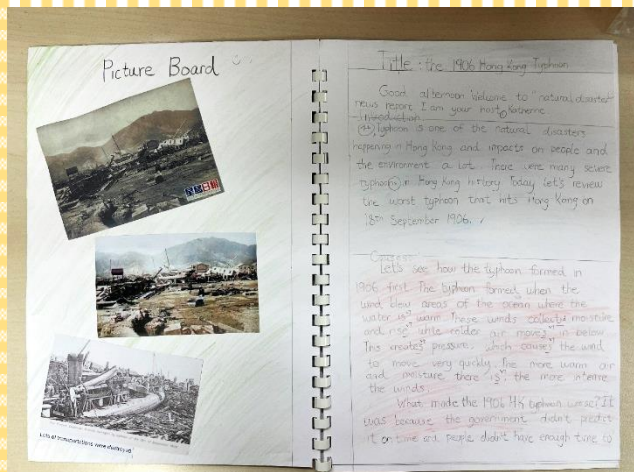 Picture Board
星島日報
Lots of transportations were destroyed.
Title : the 1906 Hong Kong Typhoon
Good afternoon Welcome to "natural disaster"
news report I am your host Katherine
Introduction
Typhoon is one of the natural disasters
happening in Hong Kong and impacts on people and
the environment a lot. There were many severe
typhoon in Hong Kong history Today let's review
the worst typhoon that hits Hong Kong on
18th September 1906.
Let's see how the typhoon formed in
1906 first. The typhoon formed when the
wind blow areas of the ocean where the
water is warm. These winds collects moisture
and rise while colder air moves in below
This creates pressure, which causes the wind
to move very quickly. The more warm air
and moisture there is, the more intense
the winds.
What made the 1906 HK typhoon worse? It
was because the government didn't predict
it on time and people didn't have enough time to